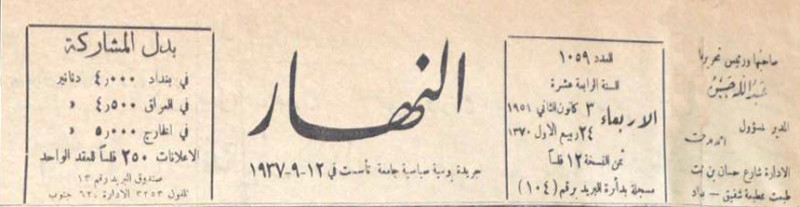 صاحبها ورئيس تحريرها
عبدالله حسن
المدير المسؤول
الادارة شارع حسان بن ثابت
طبعت بمطبعة شفيق — بغداد
العدد ١٠٥٩
السنة الرابعة عشرة
الاربعاء
٣ كانون الثاني ١٩٥١
٢٤ ربيع الاول ١٣٧٠
ثمن النسخة ١٢ فلساً
مسجلة بدأرة البريد برقم (١٠٤)
النهار
جريدة يومية سياسية جامعة تأسست في ١٢-٩-١٩٣٧
بدل المشاركة
في بغداد ٤٫٠٠٠ دنانير
في العراق ٤٫٥٠٠ »
في الخارج ٥٫٠٠٠ »
الاعلانات ٢٥٠ فلساً للعقد الواحد
صندوق البريد رقم ١٣
تلفون ٣٢٥٣ الادارة ٦٢٠ جنوب